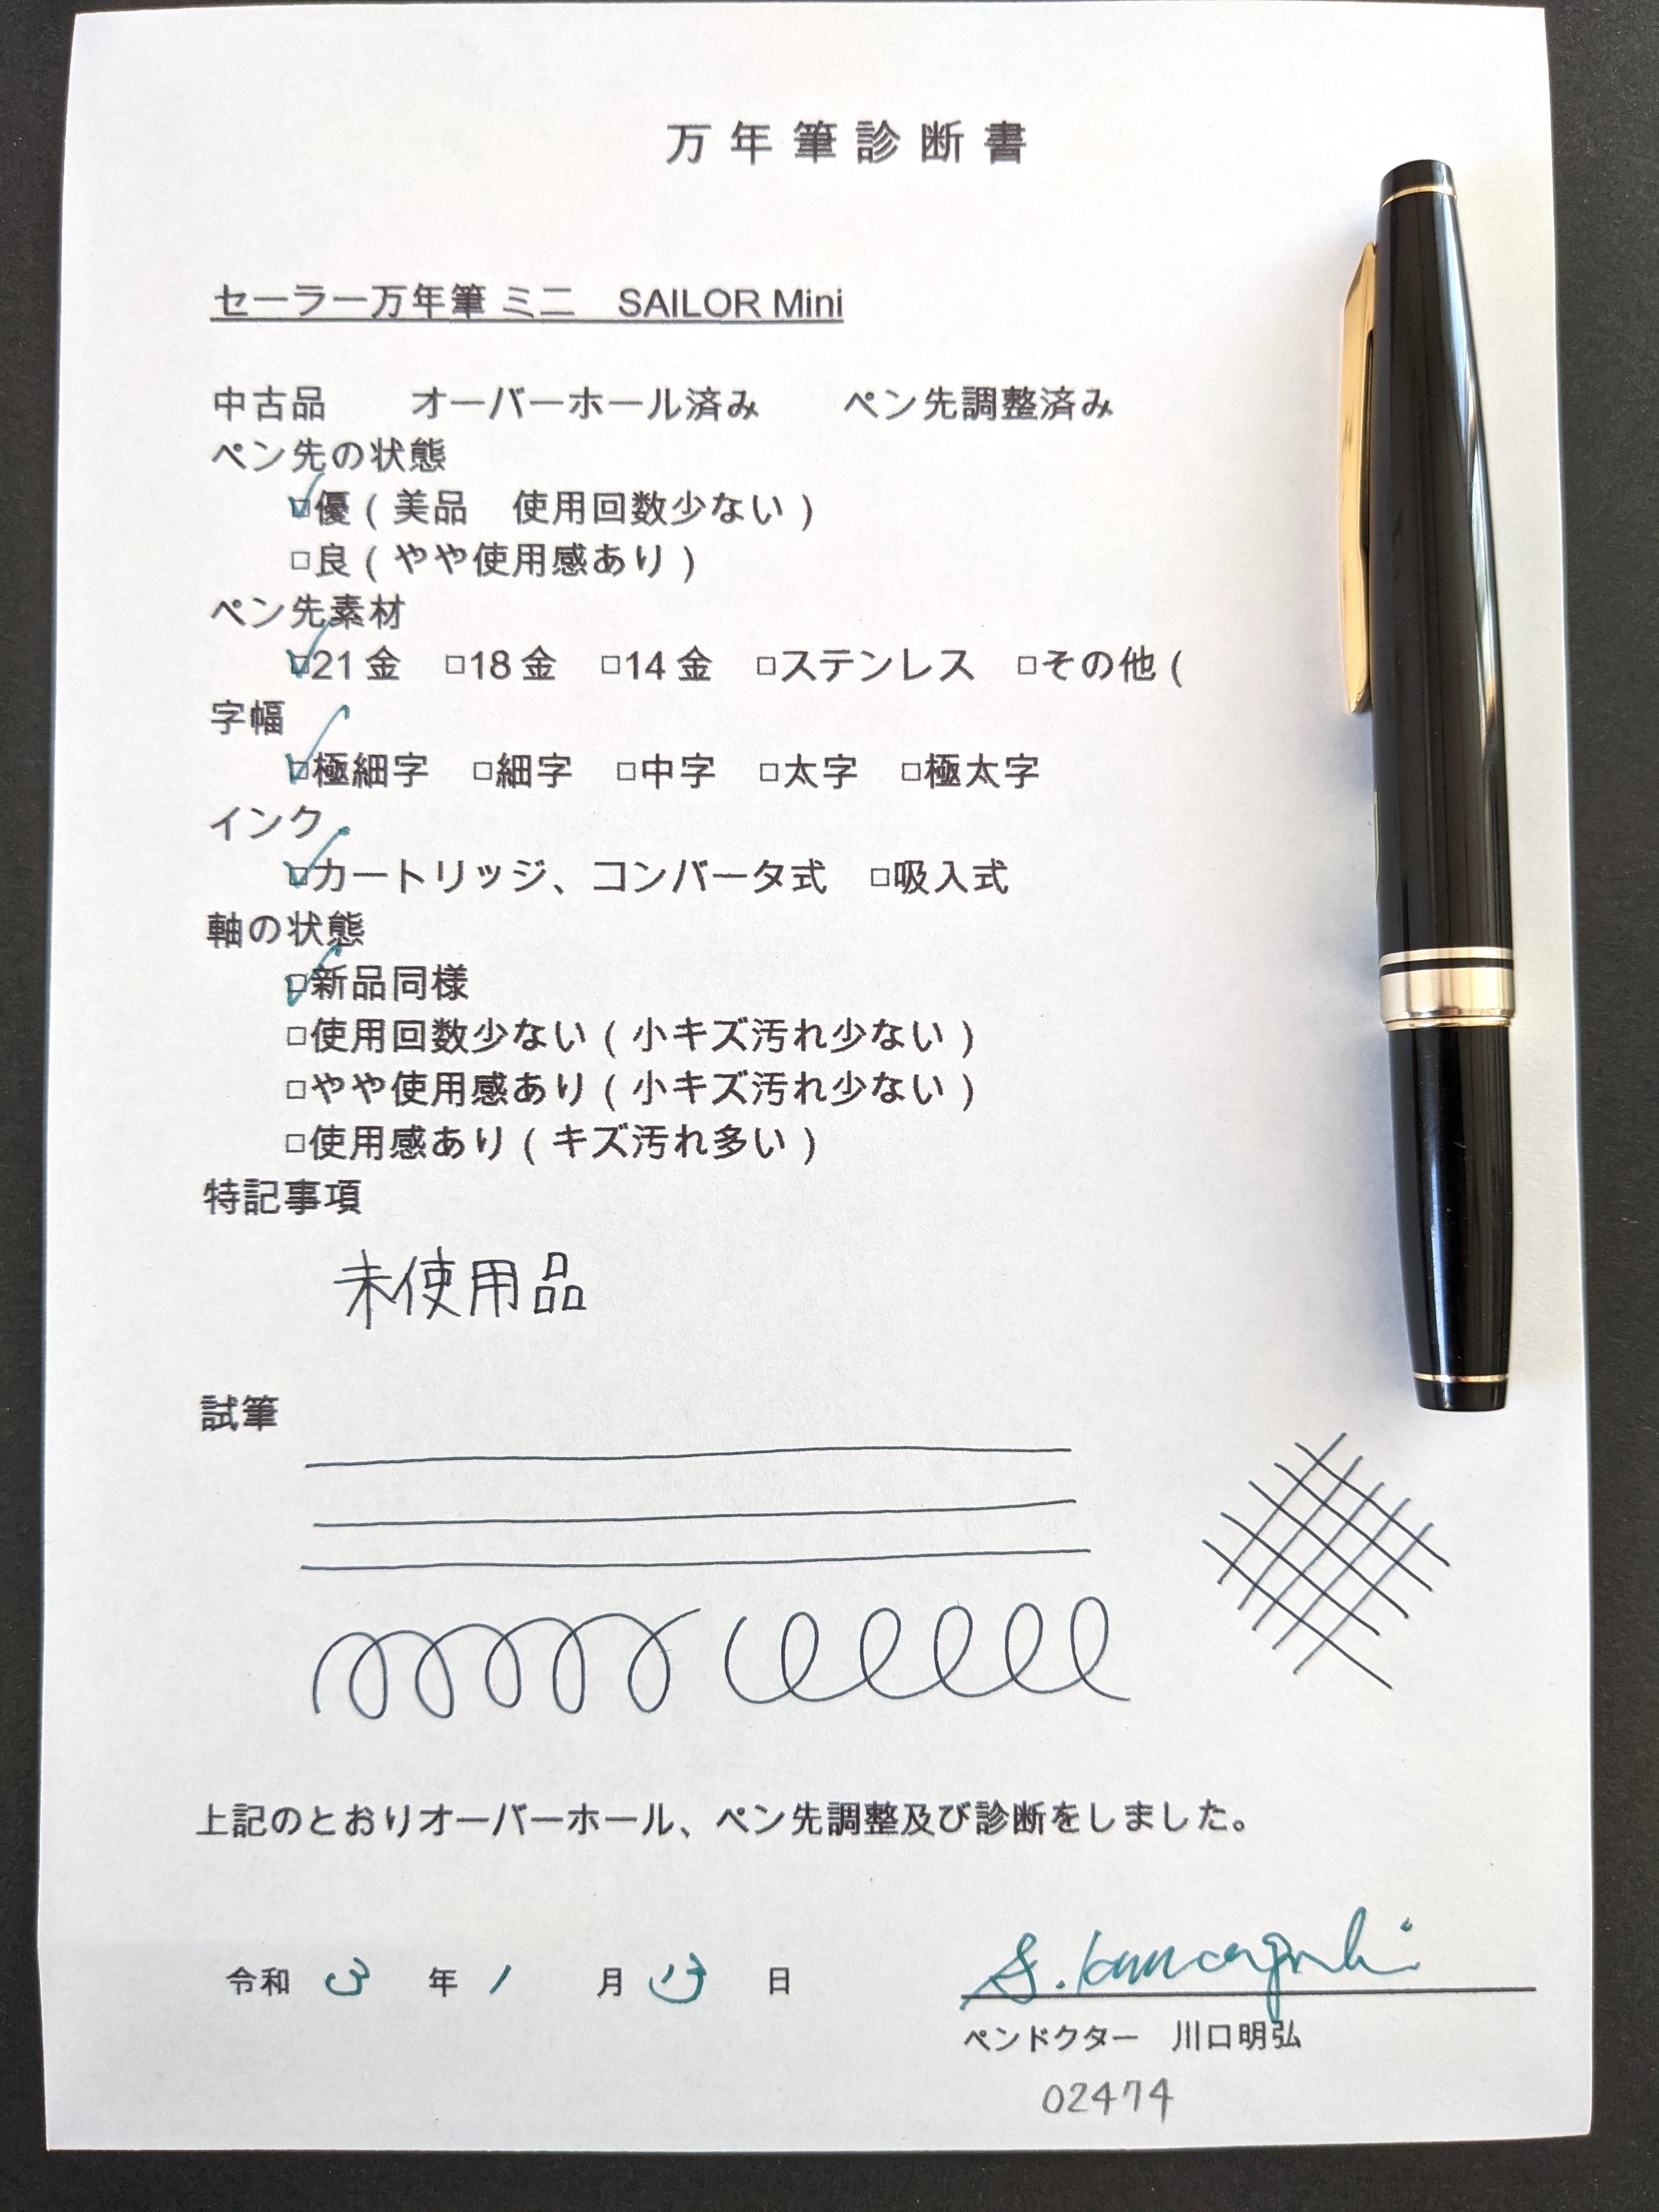 万年筆診断書
セーラー万年筆 ミニ　SAILOR Mini
中古品　オーバーホール済み　ペン先調整済み
ペン先の状態
☑優（美品　使用回数少ない）
□良（やや使用感あり）
ペン先素材
☑21金　□18金　□14金　□ステンレス　□その他（
字幅
☑極細字　□細字　□中字　□太字　□極太字
インク
☑カートリッジ、コンバータ式　□吸入式
軸の状態
☑新品同様
□使用回数少ない（小キズ汚れ少ない）
□やや使用感あり（小キズ汚れ少ない）
□使用感あり（キズ汚れ多い）
特記事項
未使用品
試筆
上記のとおりオーバーホール、ペン先調整及び診断をしました。
令和 3 年 1 月 日
ペンドクター　川口明弘
02474